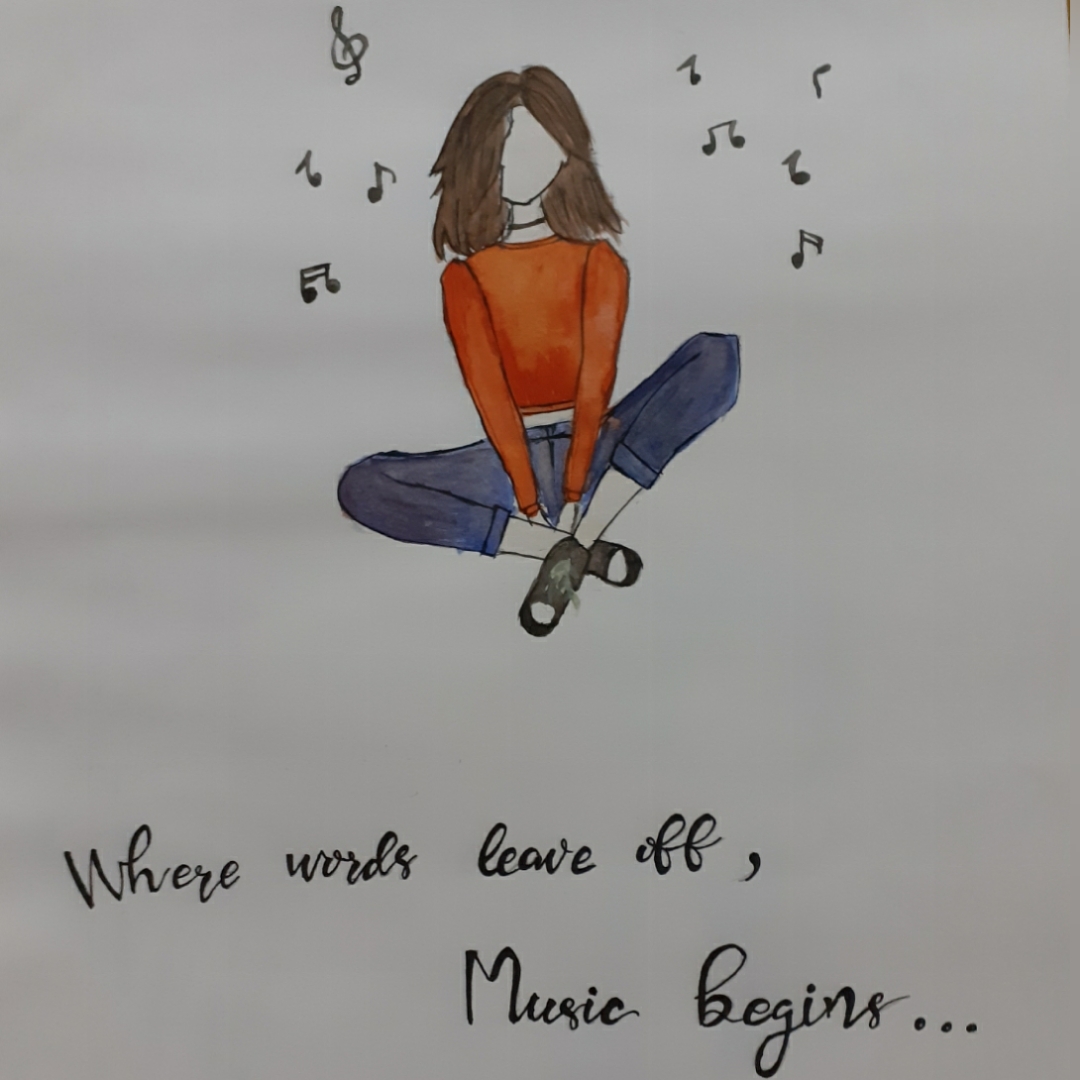 Where words leave off,
Music begins...